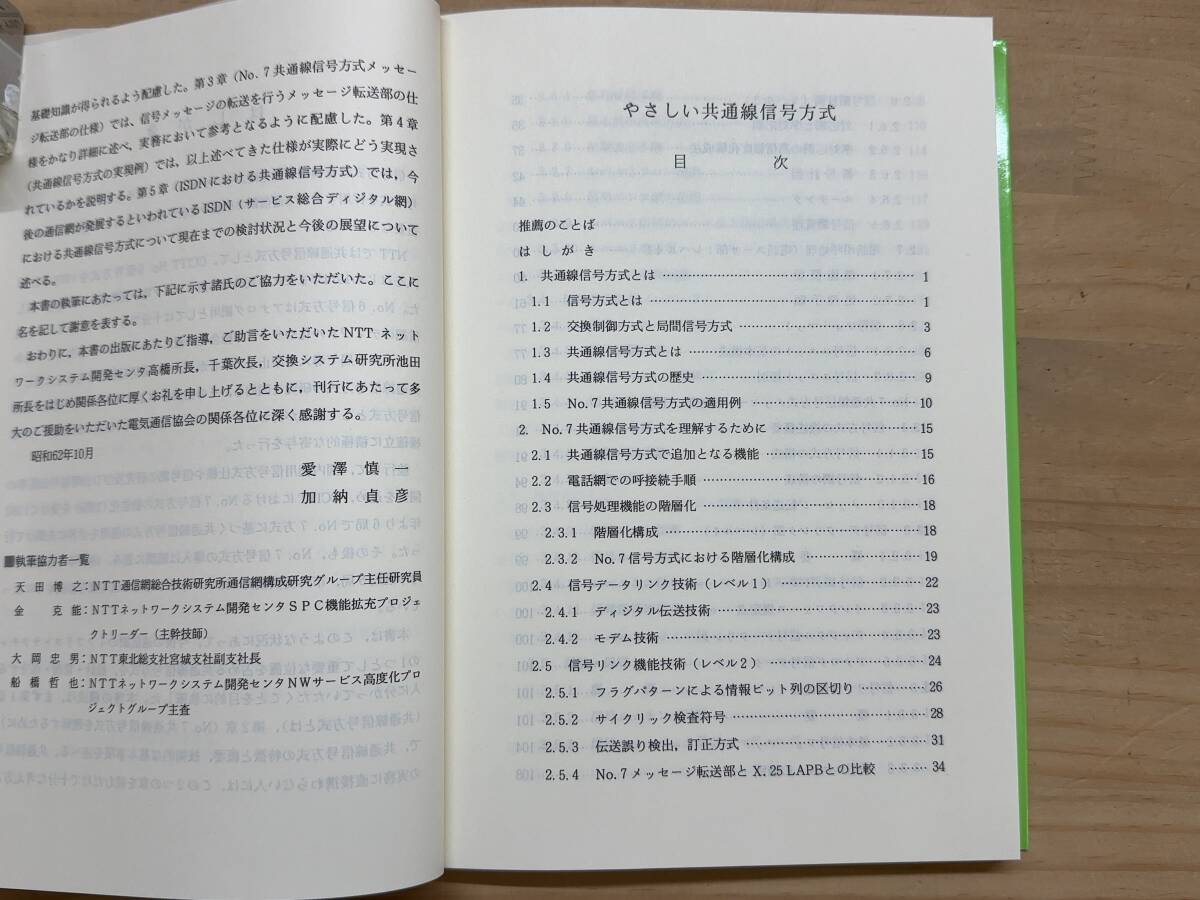 基礎知識が得られるよう配慮した。第3章（No. 7 共通線信号方式メッセー
ジ転送部の仕様）では、信号メッセージの転送を行うメッセージ転送部の仕
様をかなり詳細に述べ、実務において参考となるように配慮した。第4章
（共通線信号方式の実現例）では、以上述べてきた仕様が実際にどう実現さ
れているかを説明する。第5章（ISDNにおける共通線信号方式）では、今
後の通信網が発展するといわれているISDN（サービス総合ディジタル網）
における共通線信号方式について現在までの検討状況と今後の展望について
述べる。
本書の執筆にあたっては、下記に示す諸氏のご協力をいただいた。ここに
名を記して謝意を表する。
おわりに、本書の出版にあたりご指導、ご助言をいただいたNTTネット
ワークシステム開発センタ高橋所長，千葉次長，交換システム研究所池田
所長をはじめ関係各位に厚くお礼を申し上げるとともに，刊行にあたって多
大のご援助をいただいた電気通信協会の関係各位に深く感謝する。
昭和62年10月
愛澤慎一
加納貞彦
■執筆協力者一覧
天田博之：NTT通信網総合技術研究所通信網構成研究グループ主任研究員
金克能：NTTネットワークシステム開発センタSPC機能拡充プロジェ
クトリーダー（主幹技師）
大岡忠男：NTT東北総支社宮城支社副支社長
船橋哲也：NTTネットワークシステム開発センタNWサービス高度化プロ
ジェクトグループ主査
やさしい共通線信号方式
目次
推薦のことば
はしがき
1. 共通線信号方式とは ……… 1
1.1 信号方式とは ……… 1
1.2 交換制御方式と局間信号方式 ……… 3
1.3 共通線信号方式とは ……… 6
1.4 共通線信号方式の歴史 ……… 9
1.5 No.7共通線信号方式の適用例 ……… 10
2. No.7共通線信号方式を理解するために ……… 15
2.1 共通線信号方式で追加となる機能 ……… 15
2.2 電話網での呼接続手順 ……… 16
2.3 信号処理機能の階層化 ……… 18
2.3.1 階層化構成 ……… 18
2.3.2 No.7信号方式における階層化構成 ……… 19
2.4 信号データリンク技術（レベル1） ……… 22
2.4.1 ディジタル伝送技術 ……… 23
2.4.2 モデム技術 ……… 23
2.5 信号リンク機能技術（レベル2） ……… 24
2.5.1 フラグパターンによる情報ビット列の区切り ……… 26
2.5.2 サイクリック検査符号 ……… 28
2.5.3 伝送誤り検出，訂正方式 ……… 31
2.5.4 No.7メッセージ転送部とX.25 LAPBとの比較 ……… 34